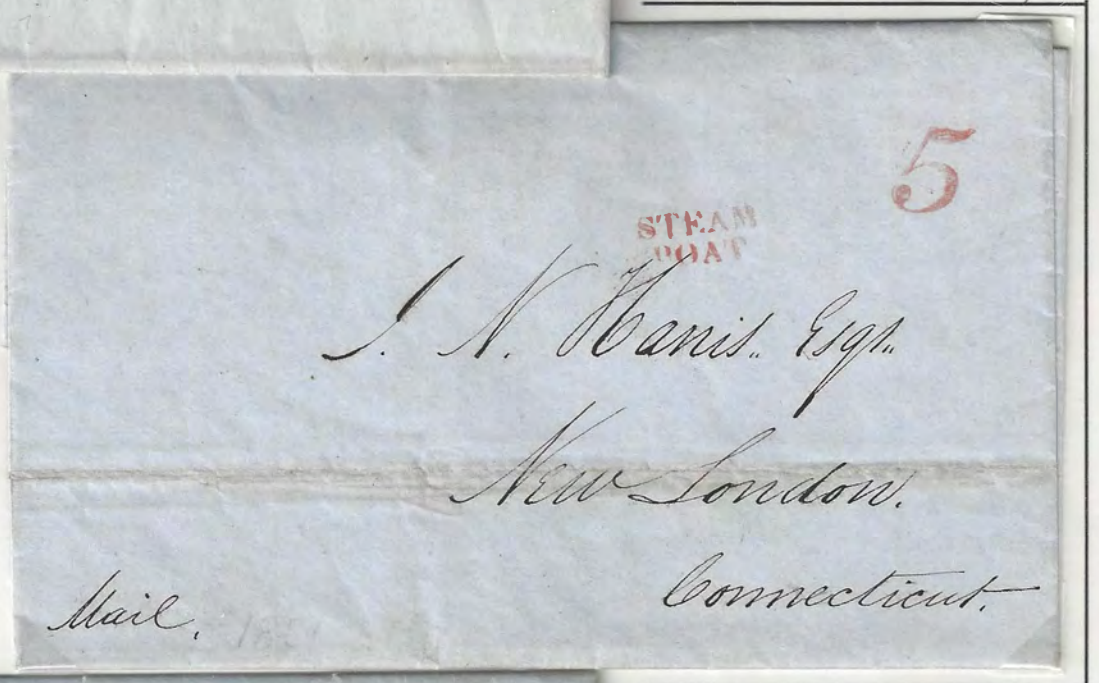 5
STEAM
BOAT
J. N. Harris.. Esqr..
New London.
Connecticut.
Mail.